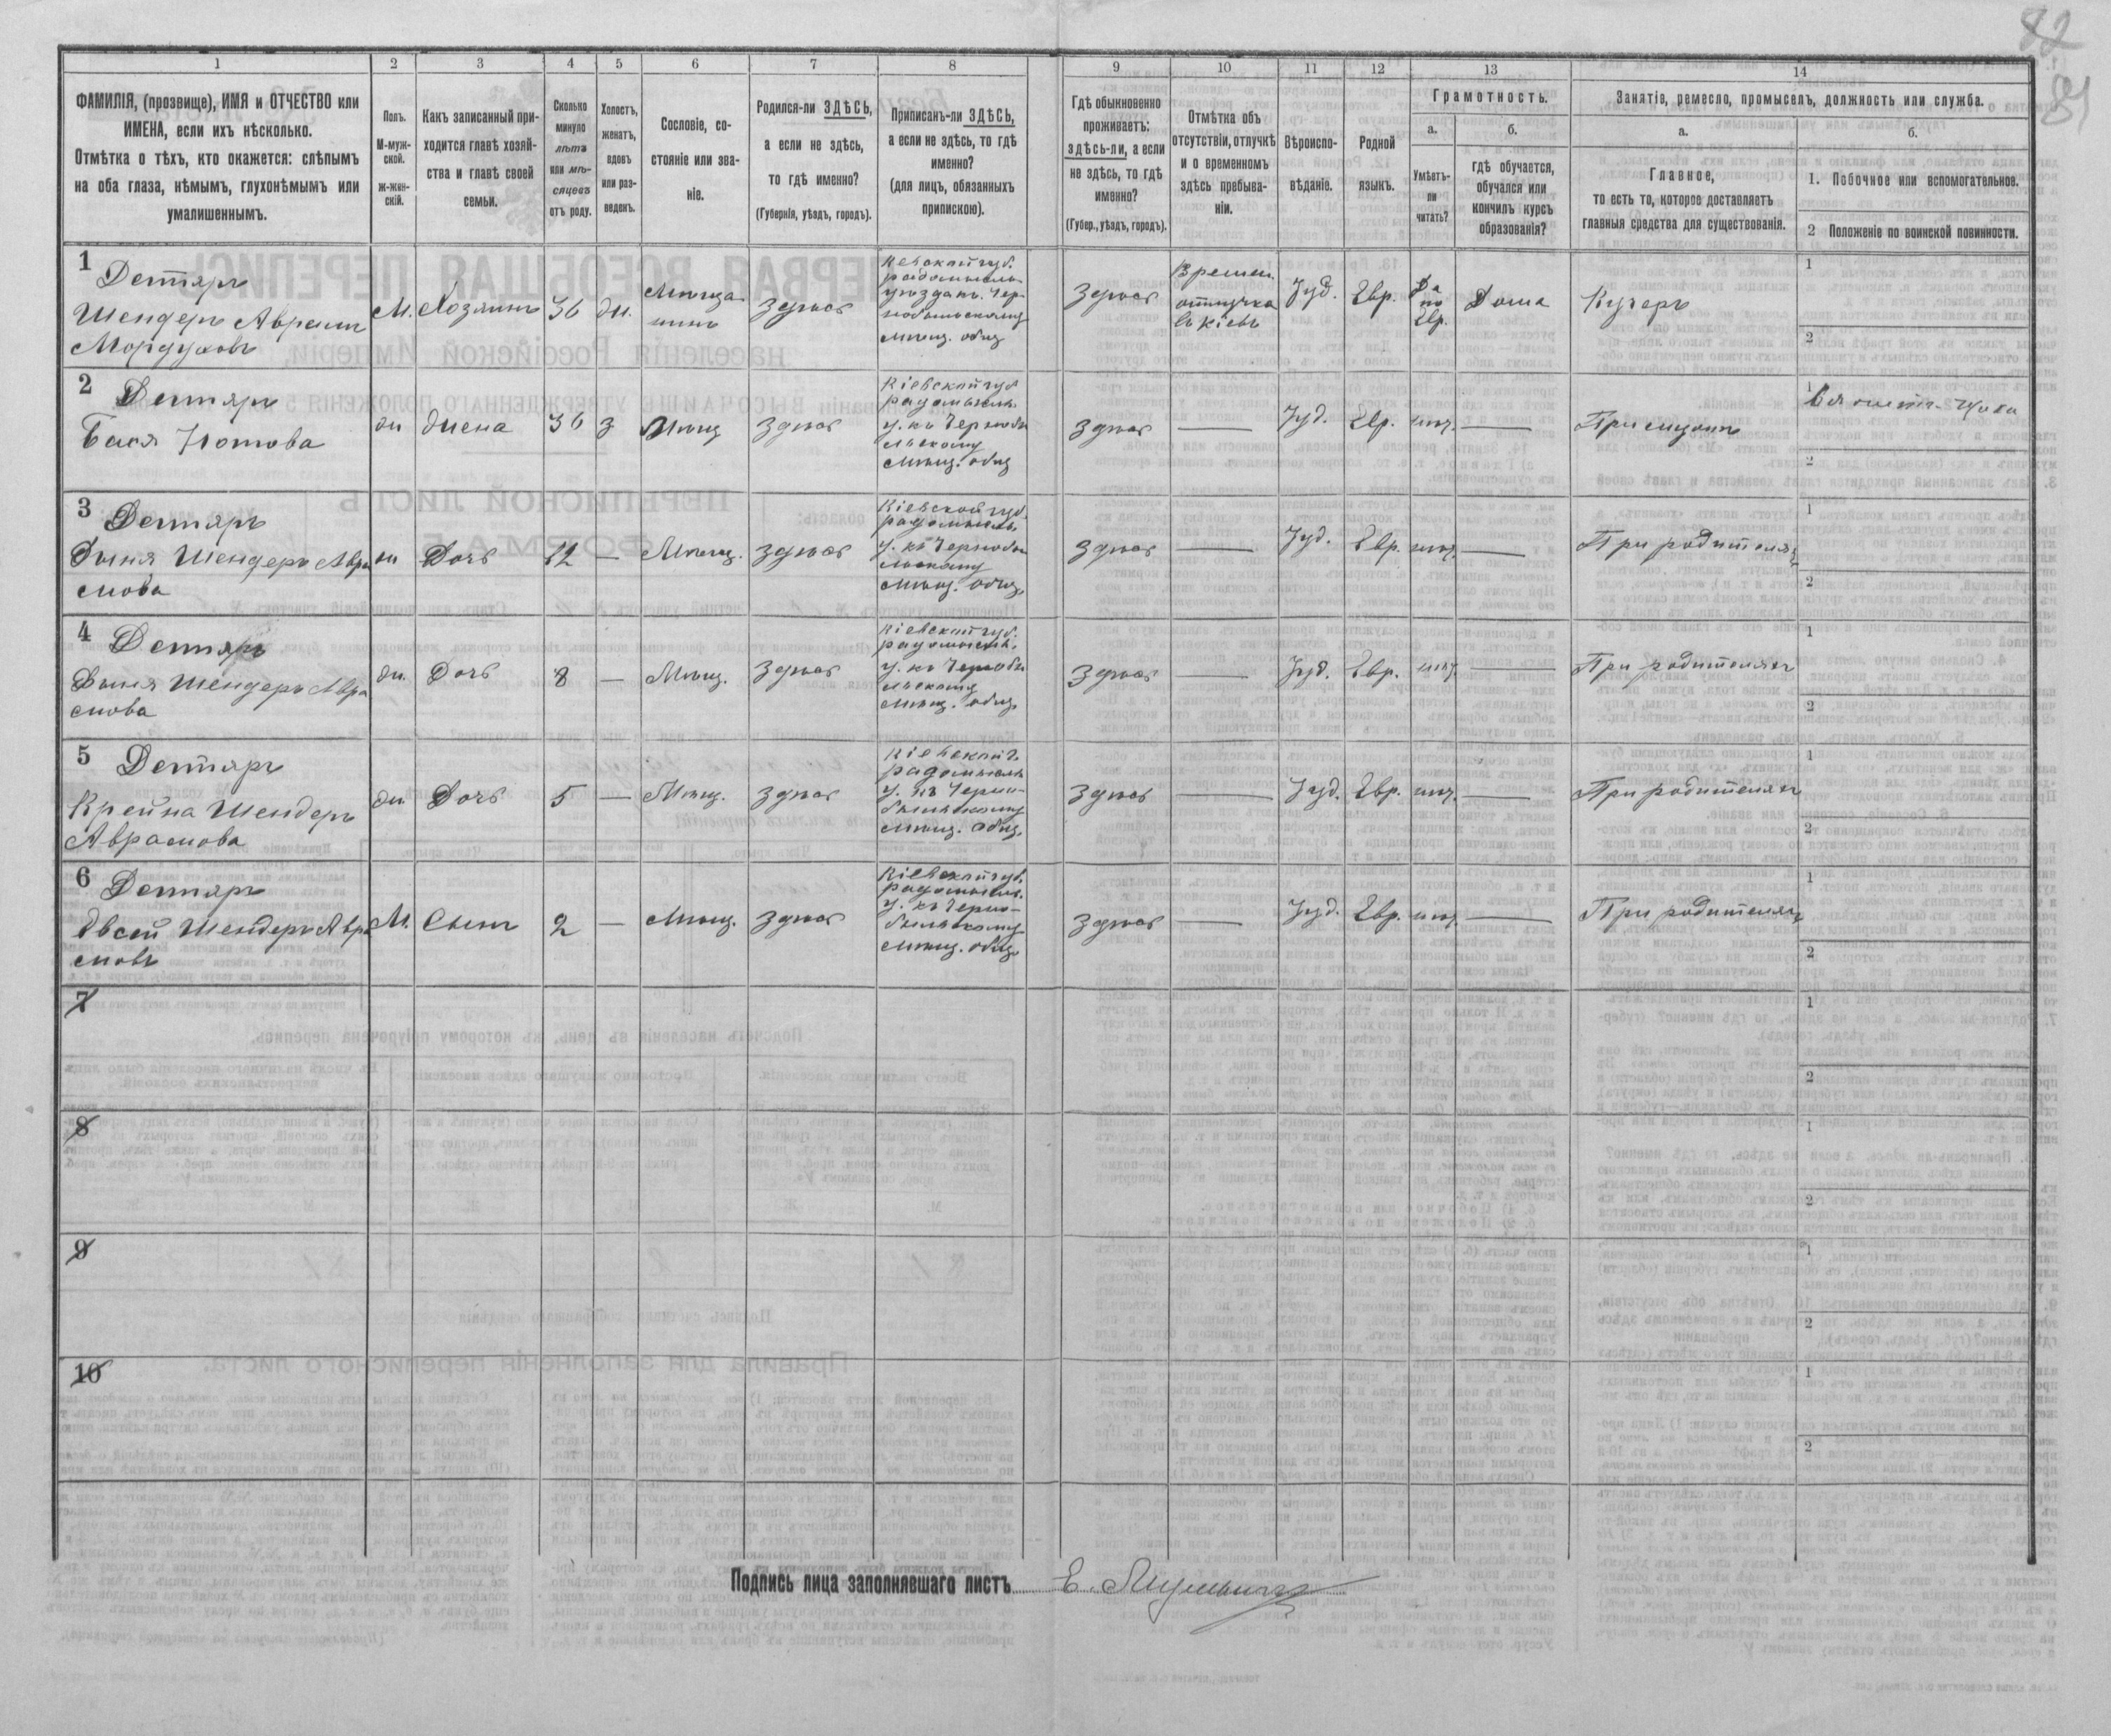 82
81
1
2
3
4
5
6
7
8
9
10
11
12
13
14
ФАМИЛІЯ, (прозвище), ИМЯ и ОТЧЕСТВО или
ИМЕНА, если ихъ нѣсколько.
Отмѣтка о тѣхъ, кто окажется: слѣпымъ
на оба глаза, нѣмымъ, глухонѣмымъ или
умалишеннымъ.
Полъ.
М-муж-
ской.
ж-жен-
скій.
Какъ записанный при-
ходится главѣ хозяй-
ства и главѣ своей
семьи.
Сколько
минуло
лѣтъ
или мѣ-
сяцевъ
отъ роду.
Холостъ,
женатъ,
вдовъ
или раз-
веденъ.
Сословіе, со-
стояніе или зва-
ніе.
Родился-ли ЗДѢСЬ,
а если не здѣсь,
то гдѣ именно?
(Губернія, уѣздъ, городъ).
Приписанъ-ли ЗДѢСЬ,
а если не здѣсь, то гдѣ
именно?
(для лицъ, обязанныхъ
припискою).
Гдѣ обыкновенно
проживаетъ:
здѣсь-ли, а если
не здѣсь, то гдѣ
именно?
(Губер., уѣздъ, городъ).
Отмѣтка объ
отсутствіи, отлучкѣ
и о временномъ
здѣсь пребыва-
ніи.
Вѣроиспо-
вѣданіе.
Родной
языкъ.
Грамотность.
а.
Умѣетъ-
ли
читать?
б.
гдѣ обучается,
обучался или
кончилъ курсъ
образованія?
Занятіе, ремесло, промыселъ, должность или служба.
а.
Главное,
то есть то, которое доставляетъ
главныя средства для существованія.
б.
1. Побочное или вспомогательное.
2 Положеніе по воинской повинности.
1
Дегтярь
Шендеръ Аврамъ
Мордуховъ
М.
Хозяинъ
36
ж.
Мѣща
нинъ
здѣсь
Кіевской губ.
радомысль
уѣзда къ Чер
нобыльскому
мѣщ. общ
здѣсь
времен.
отлучка
въ кіевъ
Іуд.
Евр.
Да
по
Евр.
Дома
Кучеръ
1
2
2
Дегтярь
Бася Нотова
ж
жена
36
з
Мѣщ
здѣсь
Кіевской губ
радомысль.
у. къ Чернобы
льскому
мѣщ. общ
здѣсь
Іуд.
Евр.
нѣт.
При мужѣ
1
2
3
Дегтярь
Шендеръ Авра
мова
ж
Дочь
12
Мѣщ.
здѣсь
Кіевской губ.
радомысль
у. къ Чернобы
льскому
мѣщ. общ.
здѣсь
Іуд.
Евр.
нѣт.
При родителяхъ
1
2
4
Дегтярь
Шендеръ Авра
мова
ж.
Дочь
8
Мѣщ.
здѣсь
Кіевской губ.
радомысль.
у. къ Чернобы
льскому
мѣщ. общ.
здѣсь
Іуд.
Евр.
нѣт.
При родителяхъ
1
2
5
Дегтярь
Крейна Шендеръ
Аврамова
ж.
Дочь
5
Мѣщ.
здѣсь
Кіевской г.
радомысль
у. къ Черно-
быльскому
мѣщ. общ.
здѣсь
Іуд.
Евр.
нѣт.
При родителяхъ
1
2
6
Дегтярь
Овсей Шендеръ Авра
мовъ
М.
Сынъ
2
Мѣщ.
здѣсь
Кіевской губ.
радомысль.
у. къ Черно-
быльскому
мѣщ. общ.
здѣсь
Іуд.
Евр.
нѣт.
При родителяхъ
1
2
7
1
2
8
1
2
9
1
2
10
1
2
Подпись лица заполнявшаго листъ